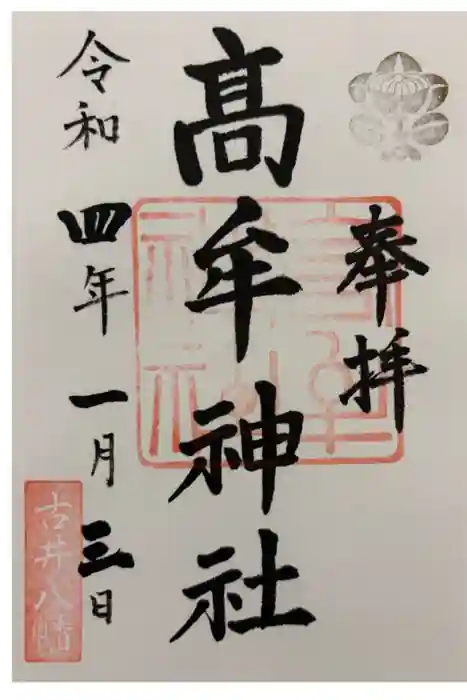 奉拝
高牟神社
令和四年一月三日
古井八幡